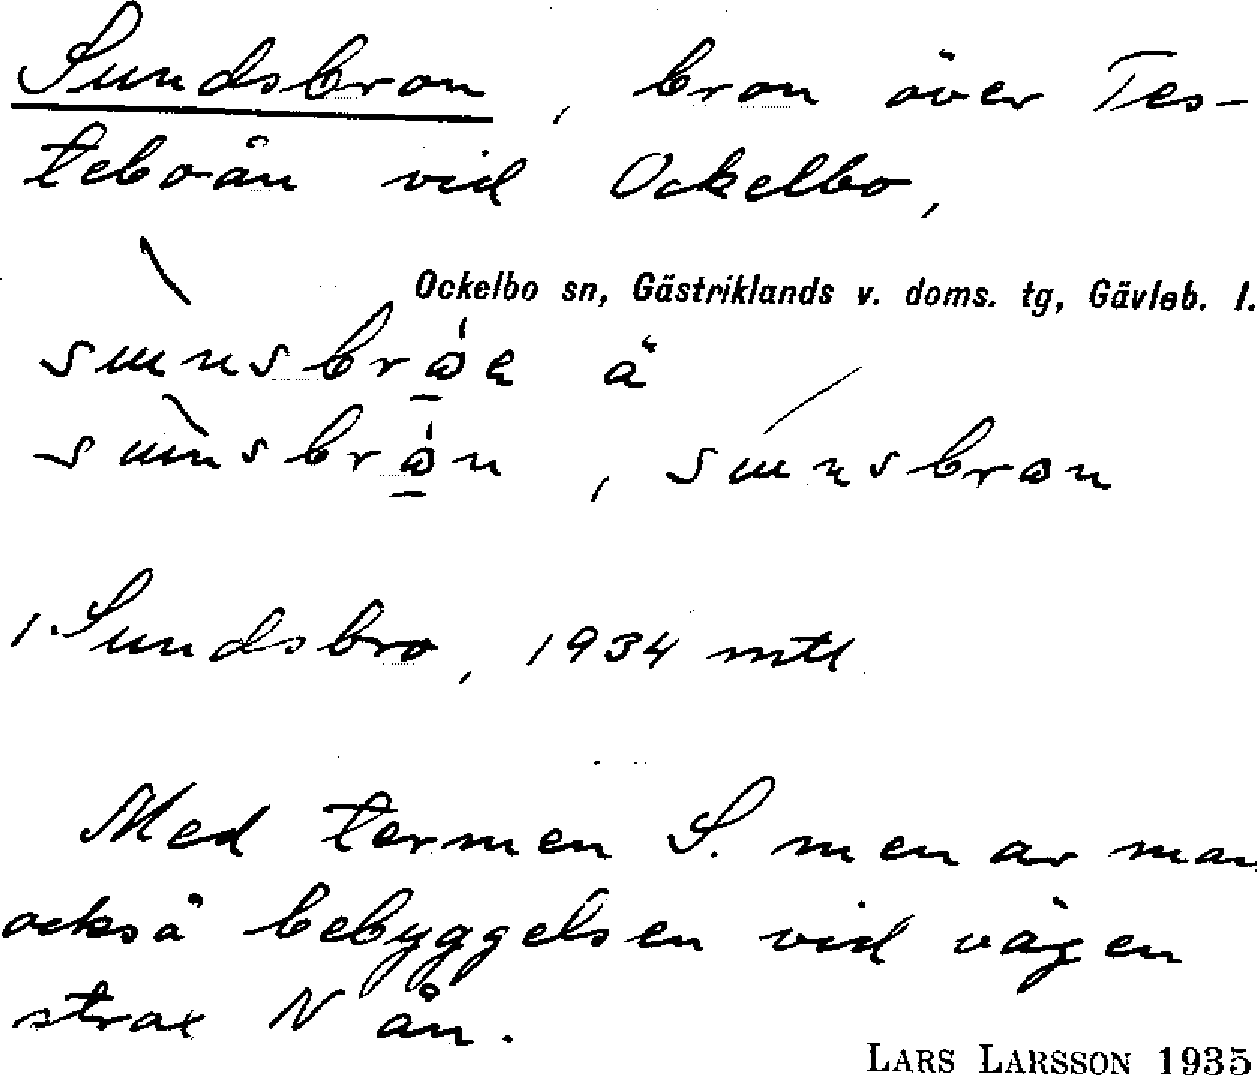 Sundsbron, bron över Tes-
teboån vid Ockelbo,
Ockelbo sn, Gästriklands v. doms. tg, Gävleb. l.
1. Sundsbro, 1934 mtl
Med termen S. menar man
också bebyggelsen vid vägen
strax N ån.
LARS LARSSON 1935